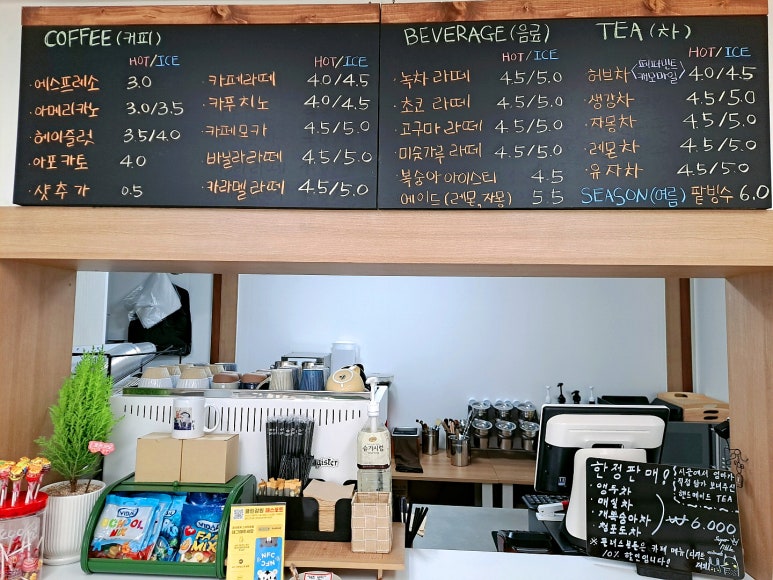 COFFEE (커피)
HOT/ICE HOT/ICE
에스프레소 3.0
아메리카노 3.0/3.5
헤이즐럿 3.5/4.0
아포카토 4.0
샷추가 0.5
카페라떼 4.0/4.5
카푸치노 4.0/4.5
카페모카 4.5/5.0
바닐라라떼 4.5/5.0
카라멜라떼 4.5/5.0
BEVERAGE (음료)
HOT/ICE
녹차라떼 4.5/5.0
쵸코라떼 4.5/5.0
고구마라떼 4.5/5.0
미숫가루라떼 4.5/5.0
복숭아아이스티 4.5
에이드(레몬,자몽) 5.5
TEA (차)
HOT/ICE
허브차<페퍼민트 캐모마일> 4.0/4.5
생강차 4.5/5.0
자몽차 4.5/5.0
레몬차 4.5/5.0
유자차 4.5/5.0
SEASON(여름) 팥빙수 6.0
슈가시럽
VIDAL
SCHOOL
VIDAL
MIX
NFC
한정판매!
시골에서 엄마가
직접 담가 보내주신
핸드메이드 TEA
앵두차
매실차
개복숭아차
청포도차
₩6.000
10% 할인됩니다!